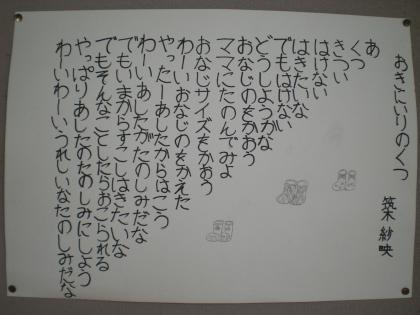 おきにいりのくつ
築木 紗映
あ
くつ
きつい
はけない
はきたいな
でもはけない
どうしようかな
おなじのをかおう
ママにたのんでみよ
おなじサイズをかおう
わーいおなじのをかえた
やったーあしたからはこう
わーいあしたがたのしみだな
でもいまからすこしはきたいな
でもそんなことしたらおこられる
やっぱりあしたのたのしみにしよう
わーいわーいうれしいなたのしみだな